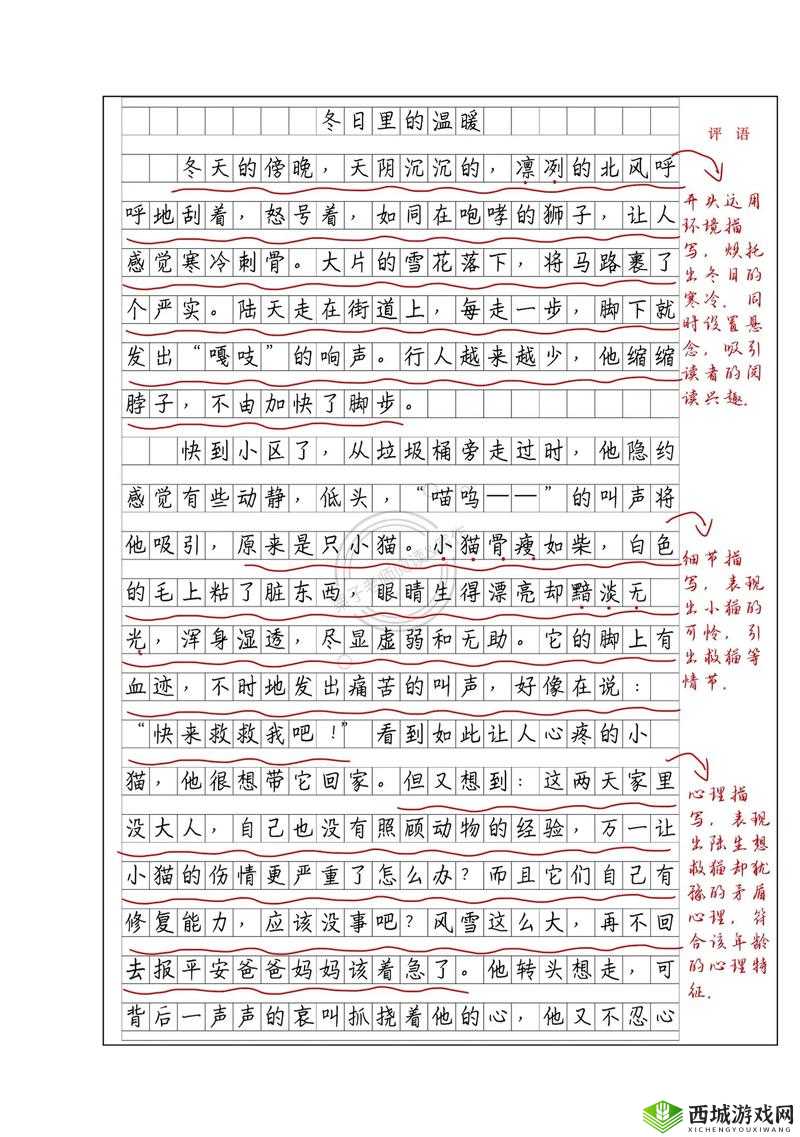 冬日里的温暖
评语
冬天的傍晚，天阴沉沉的，凛冽的北风呼
呼地刮着，怒号着，如同在咆哮的狮子，让人
感觉寒冷刺骨。大片的雪花落下，将马路裹了
个严实。陆天走在街道上，每走一步，脚下就
发出“嘎吱”的响声。行人越来越少，他缩缩
脖子，不由加快了脚步。
开头运用
环境描
写，烘托
出冬日的
寒冷，同
时设置悬
念，吸引
读者的阅
读兴趣。
快到小区了，从垃圾桶旁走过时，他隐约
感觉有些动静，低头，“喵呜——”的叫声将
他吸引，原来是只小猫。小猫骨瘦如柴，白色
的毛上粘了脏东西，眼睛生得漂亮却黯淡无
光，浑身湿透，尽显虚弱和无助。它的脚上有
血迹，不时地发出痛苦的叫声，好像在说：
“快来救救我吧！”看到如此让人心疼的小
猫，他很想带它回家。但又想到：这两天家里
没大人，自己也没有照顾动物的经验，万一让
小猫的伤情更严重了怎么办？而且它们自己有
修复能力，应该没事吧？风雪这么大，再不回
去报平安爸爸妈妈该着急了。他转头想走，可
背后一声声的哀叫抓挠着他的心，他又不忍心
细节描
写，表现
出小猫的
可怜，引
出救猫等
情节。
心理描
写，表现
出陆生想
救猫却犹
豫的矛盾
心理，符
合该年龄
的心理特
征。
西城游戏网
XICHENGYOUXIWANG